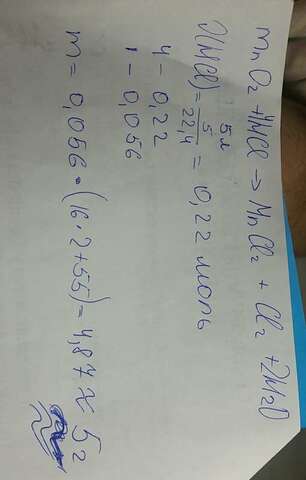 MnO₂ + 4HCl → MnCl₂ + Cl₂ + 2H₂O
5л
ν(HCl) = 5/22,4 = 0,22 моль
4 – 0,22
1 – 0,056
m = 0,056 · (16·2+55) = 4,87 ≈ 5г